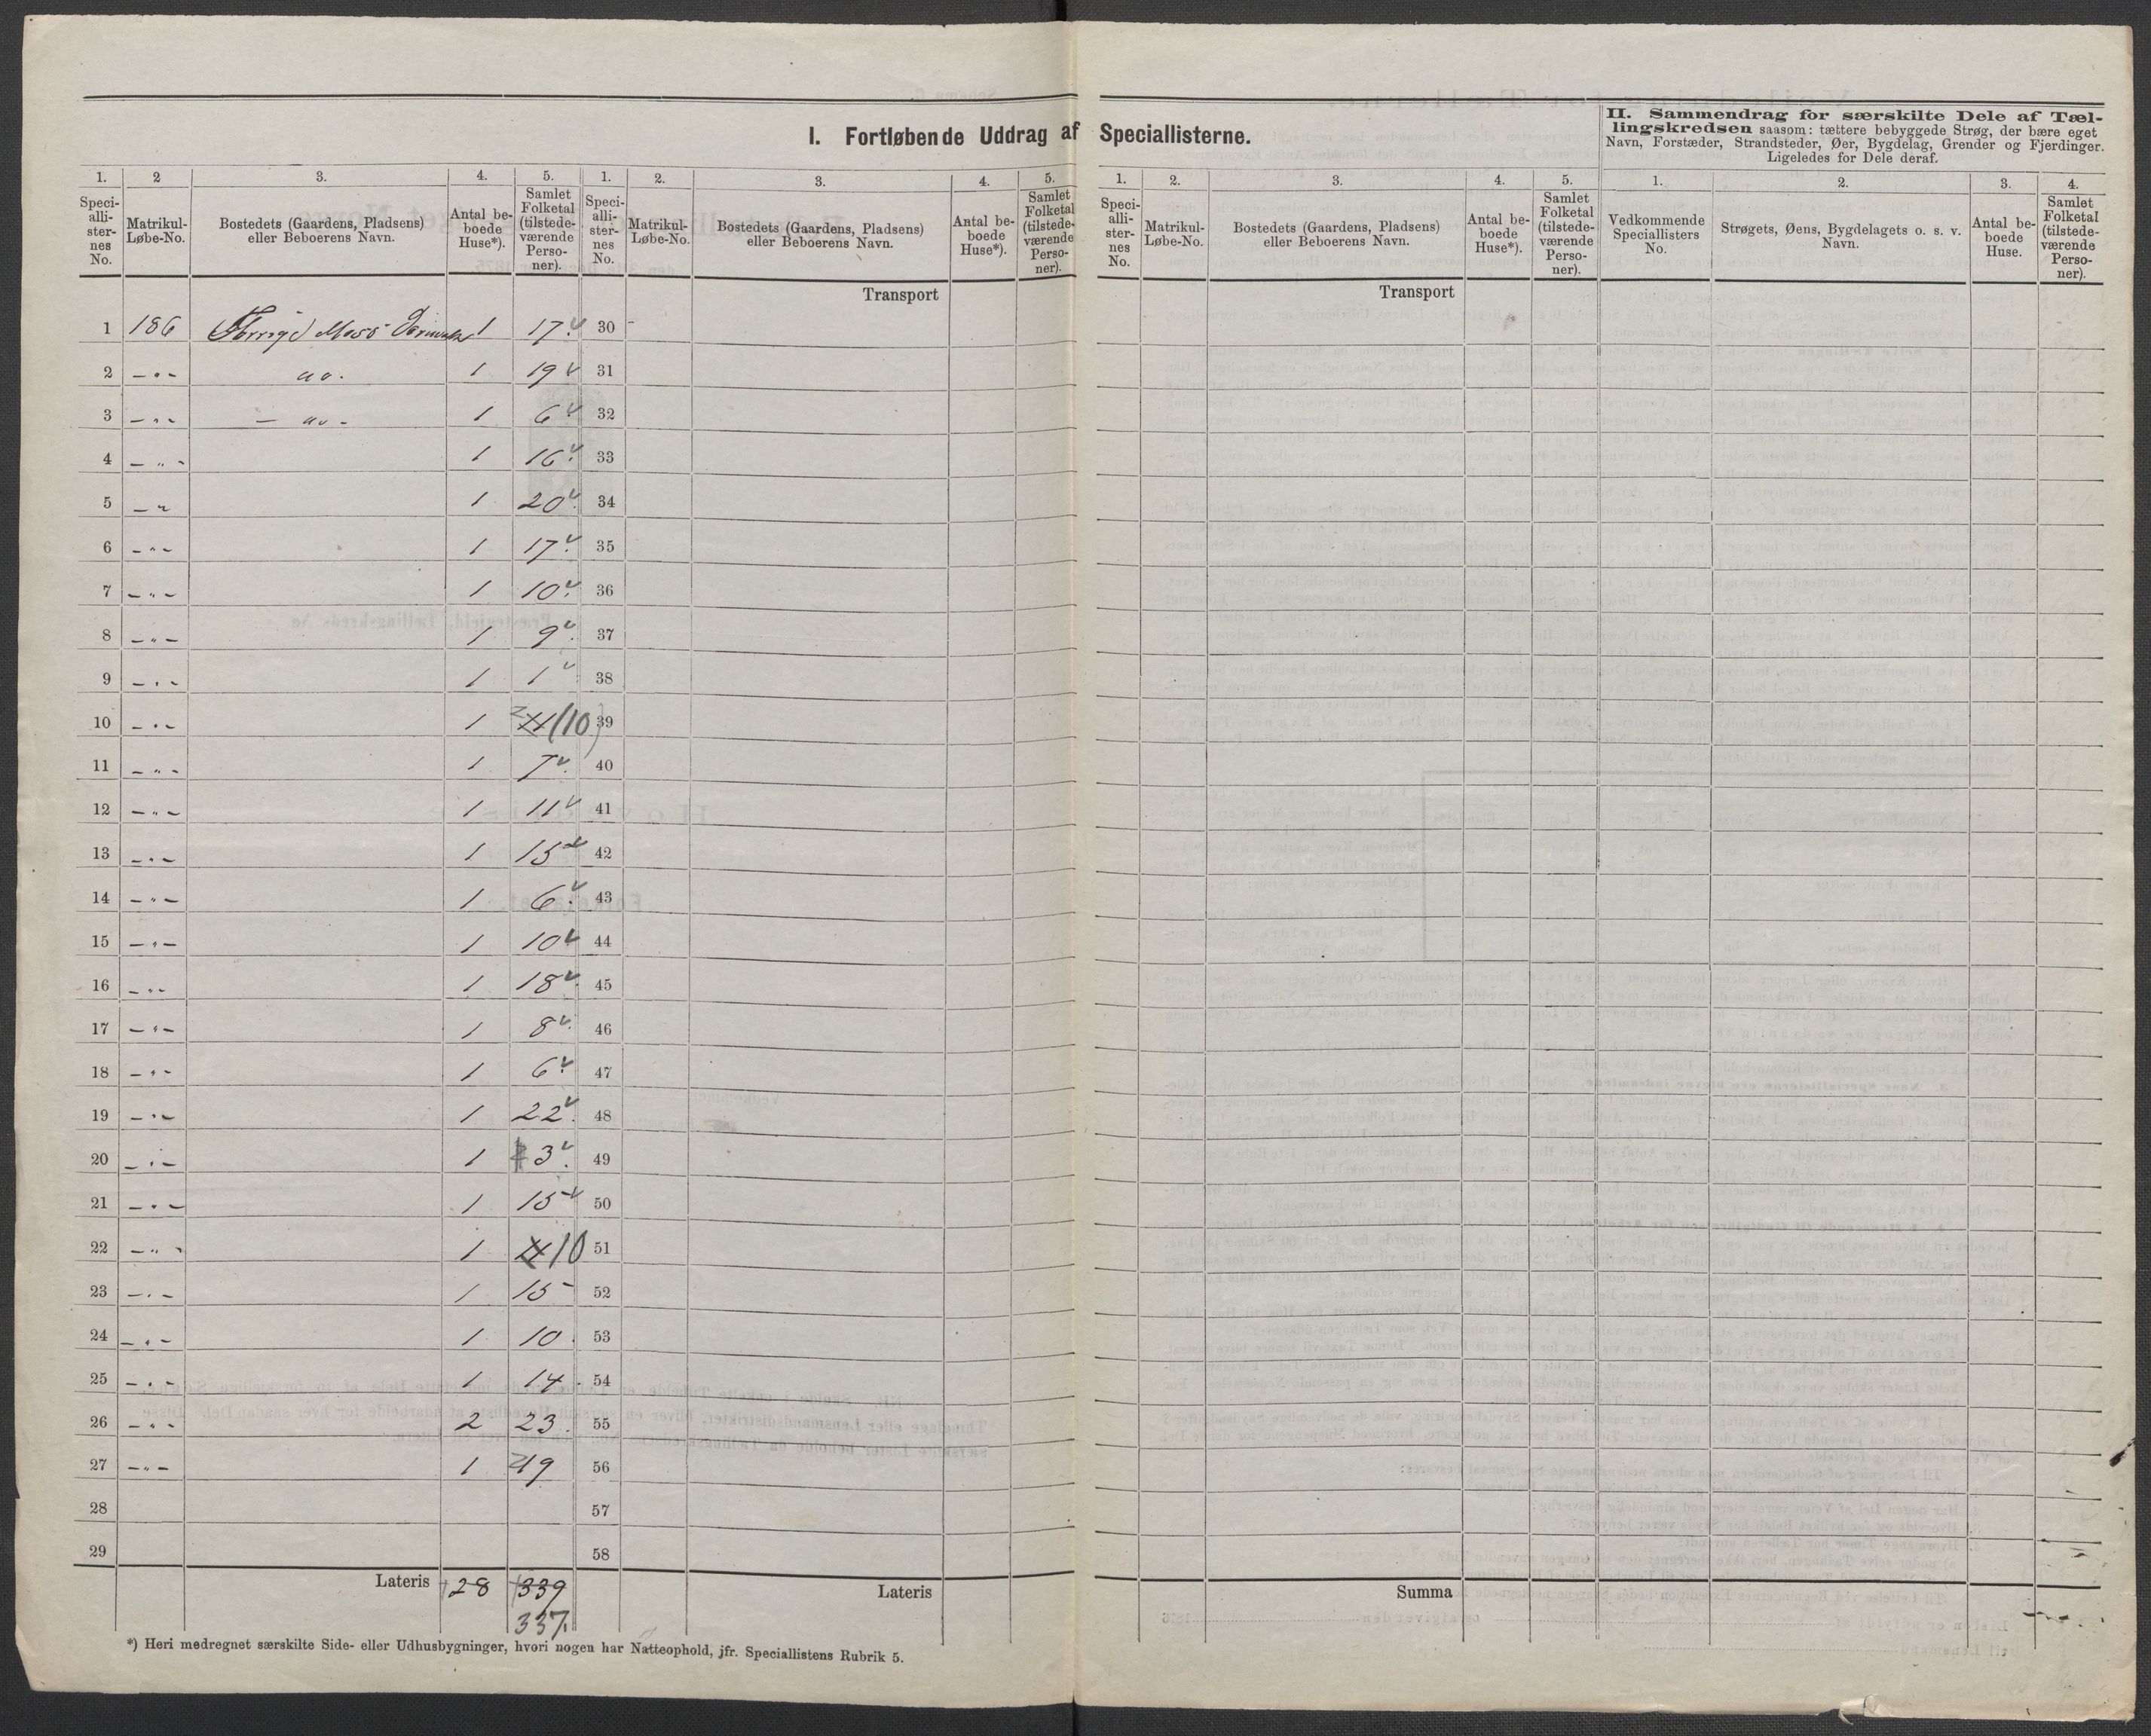 I. Fortløbende Uddrag af Speciallisterne.
II. Sammendrag for særskilte Dele af Tæl-
lingskredsen saasom: tættere bebyggede Strøg, der bære eget
Navn, Forstæder, Strandsteder, Øer, Bygdelag, Grender og Fjerdinger.
Ligeledes for Dele deraf.
1. 2 3. 4. 5. 1. 2. 3. 4. 5. 1. 2. 3. 4. 5. 1. 2. 3. 4.
Speci-
alli-
ster-
nes
No.
Matrikul-
Løbe-No.
Bostedets (Gaardens, Pladsens)
eller Beboerens Navn.
Antal be-
boede
Huse*).
Samlet
Folketal
(tilstede-
værende
Perso-
ner).
Speci-
alli-
ster-
nes
No.
Matrikul-
Løbe-No.
Bostedets (Gaardens, Pladsens)
eller Beboerens Navn.
Antal be-
boede
Huse*).
Samlet
Folketal
(tilstede-
værende
Perso-
ner).
Speci-
alli-
ster-
nes
No.
Matrikul-
Løbe-No.
Bostedets (Gaardens, Pladsens)
eller Beboerens Navn.
Antal be-
boede
Huse*).
Samlet
Folketal
(tilstede-
værende
Perso-
ner).
Vedkommende
Speciallisters
No.
Strøgets, Øens, Bygdelagets o. s. v.
Navn.
Antal be-
boede
Huse.
Samlet
Folketal
(tilstede-
værende
Perso-
ner).
Transport Transport
1 186 Moss 1 17. 30
2 - " - do. 1 19 31
3 - " - - do. - 1 6 32
4 - " - 1 16. 33
5 - " 1 20. 34
6 - " - 1 17. 35
7 - " - 1 10. 36
8 - " - 1 9. 37
9 - " - 1 1 38
10 - " - 1 (10) 39
11 - " - 1 7. 40
12 - " - 1 11 41
13 - " - 1 15 42
14 - " - 1 6. 43
15 - " - 1 10 44
16 - " - 1 18. 45
17 - " - 1 8. 46
18 - " - 1 6. 47
19 - " - 1 22. 48
20 - " - 1 3. 49
21 - " - 1 15 50
22 - " - 1 10 51
23 - " - 1 15 52
24 - " - 1 10. 53
25 - " - 1 14. 54
26 - " - 2 23. 55
27 - " - 1 19 56
28 57
29 58
Lateris 28 339 Lateris Summa
337.
*) Heri medregnet særskilte Side- eller Udhusbygninger, hvori nogen har Natteophold, jfr. Speciallistens Rubrik 5.